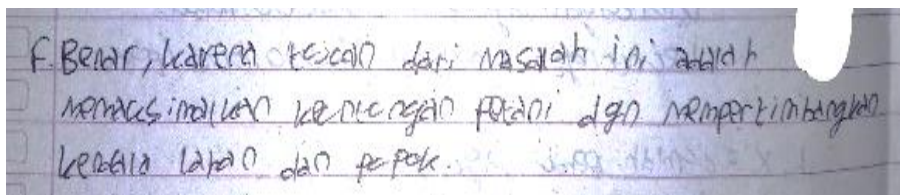 f. Benar, karena tujuan dari masalah ini adalah
memaksimalkan keuntungan petani dgn mempertimbangkan
kendala lahan dan pupuk.